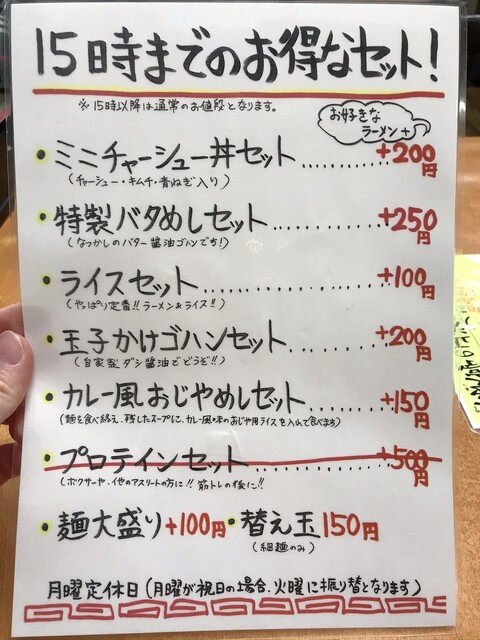 15時までのお得なセット!
※15時以降は通常のお値段となります。
お好きな
ラーメン+
・ミニチャーシュー丼セット……+200円
(チャーシュー・キムチ・青ねぎ入り)
・特製バタめしセット……+250円
(なつかしのバター醤油ゴハンでち!)
・ライスセット……+100円
(やっぱり定番!!ラーメン&ライス!!)
・玉子かけゴハンセット……+200円
(自家製ダシ醤油でどうぞ!!)
・カレー風おじやめしセット……+150円
(麺を食べ終え、残したスープに、カレー風味のおじや用ライスを入れて食べます)
プロテインセット……+500円
(ボクサーや、他のアスリートの方に!!筋トレの後に!!)
・麺大盛り+100円・替え玉150円
(細麺のみ)
月曜定休日(月曜が祝日の場合、火曜に振り替となります)